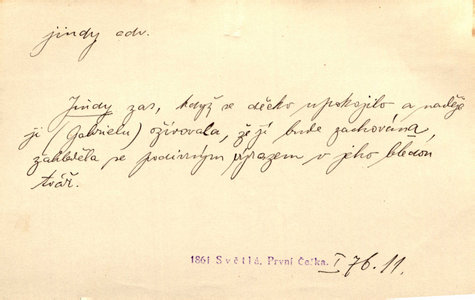 jindy adv.
Jindy zas, když se děcko upokojilo a naděje
ji (Gabrielu) oživovala, že jí bude zachováno,
zahleděla se podivným výrazem v jeho bledou
tvář.
1861 Světlá. První Češka. I 76.11.